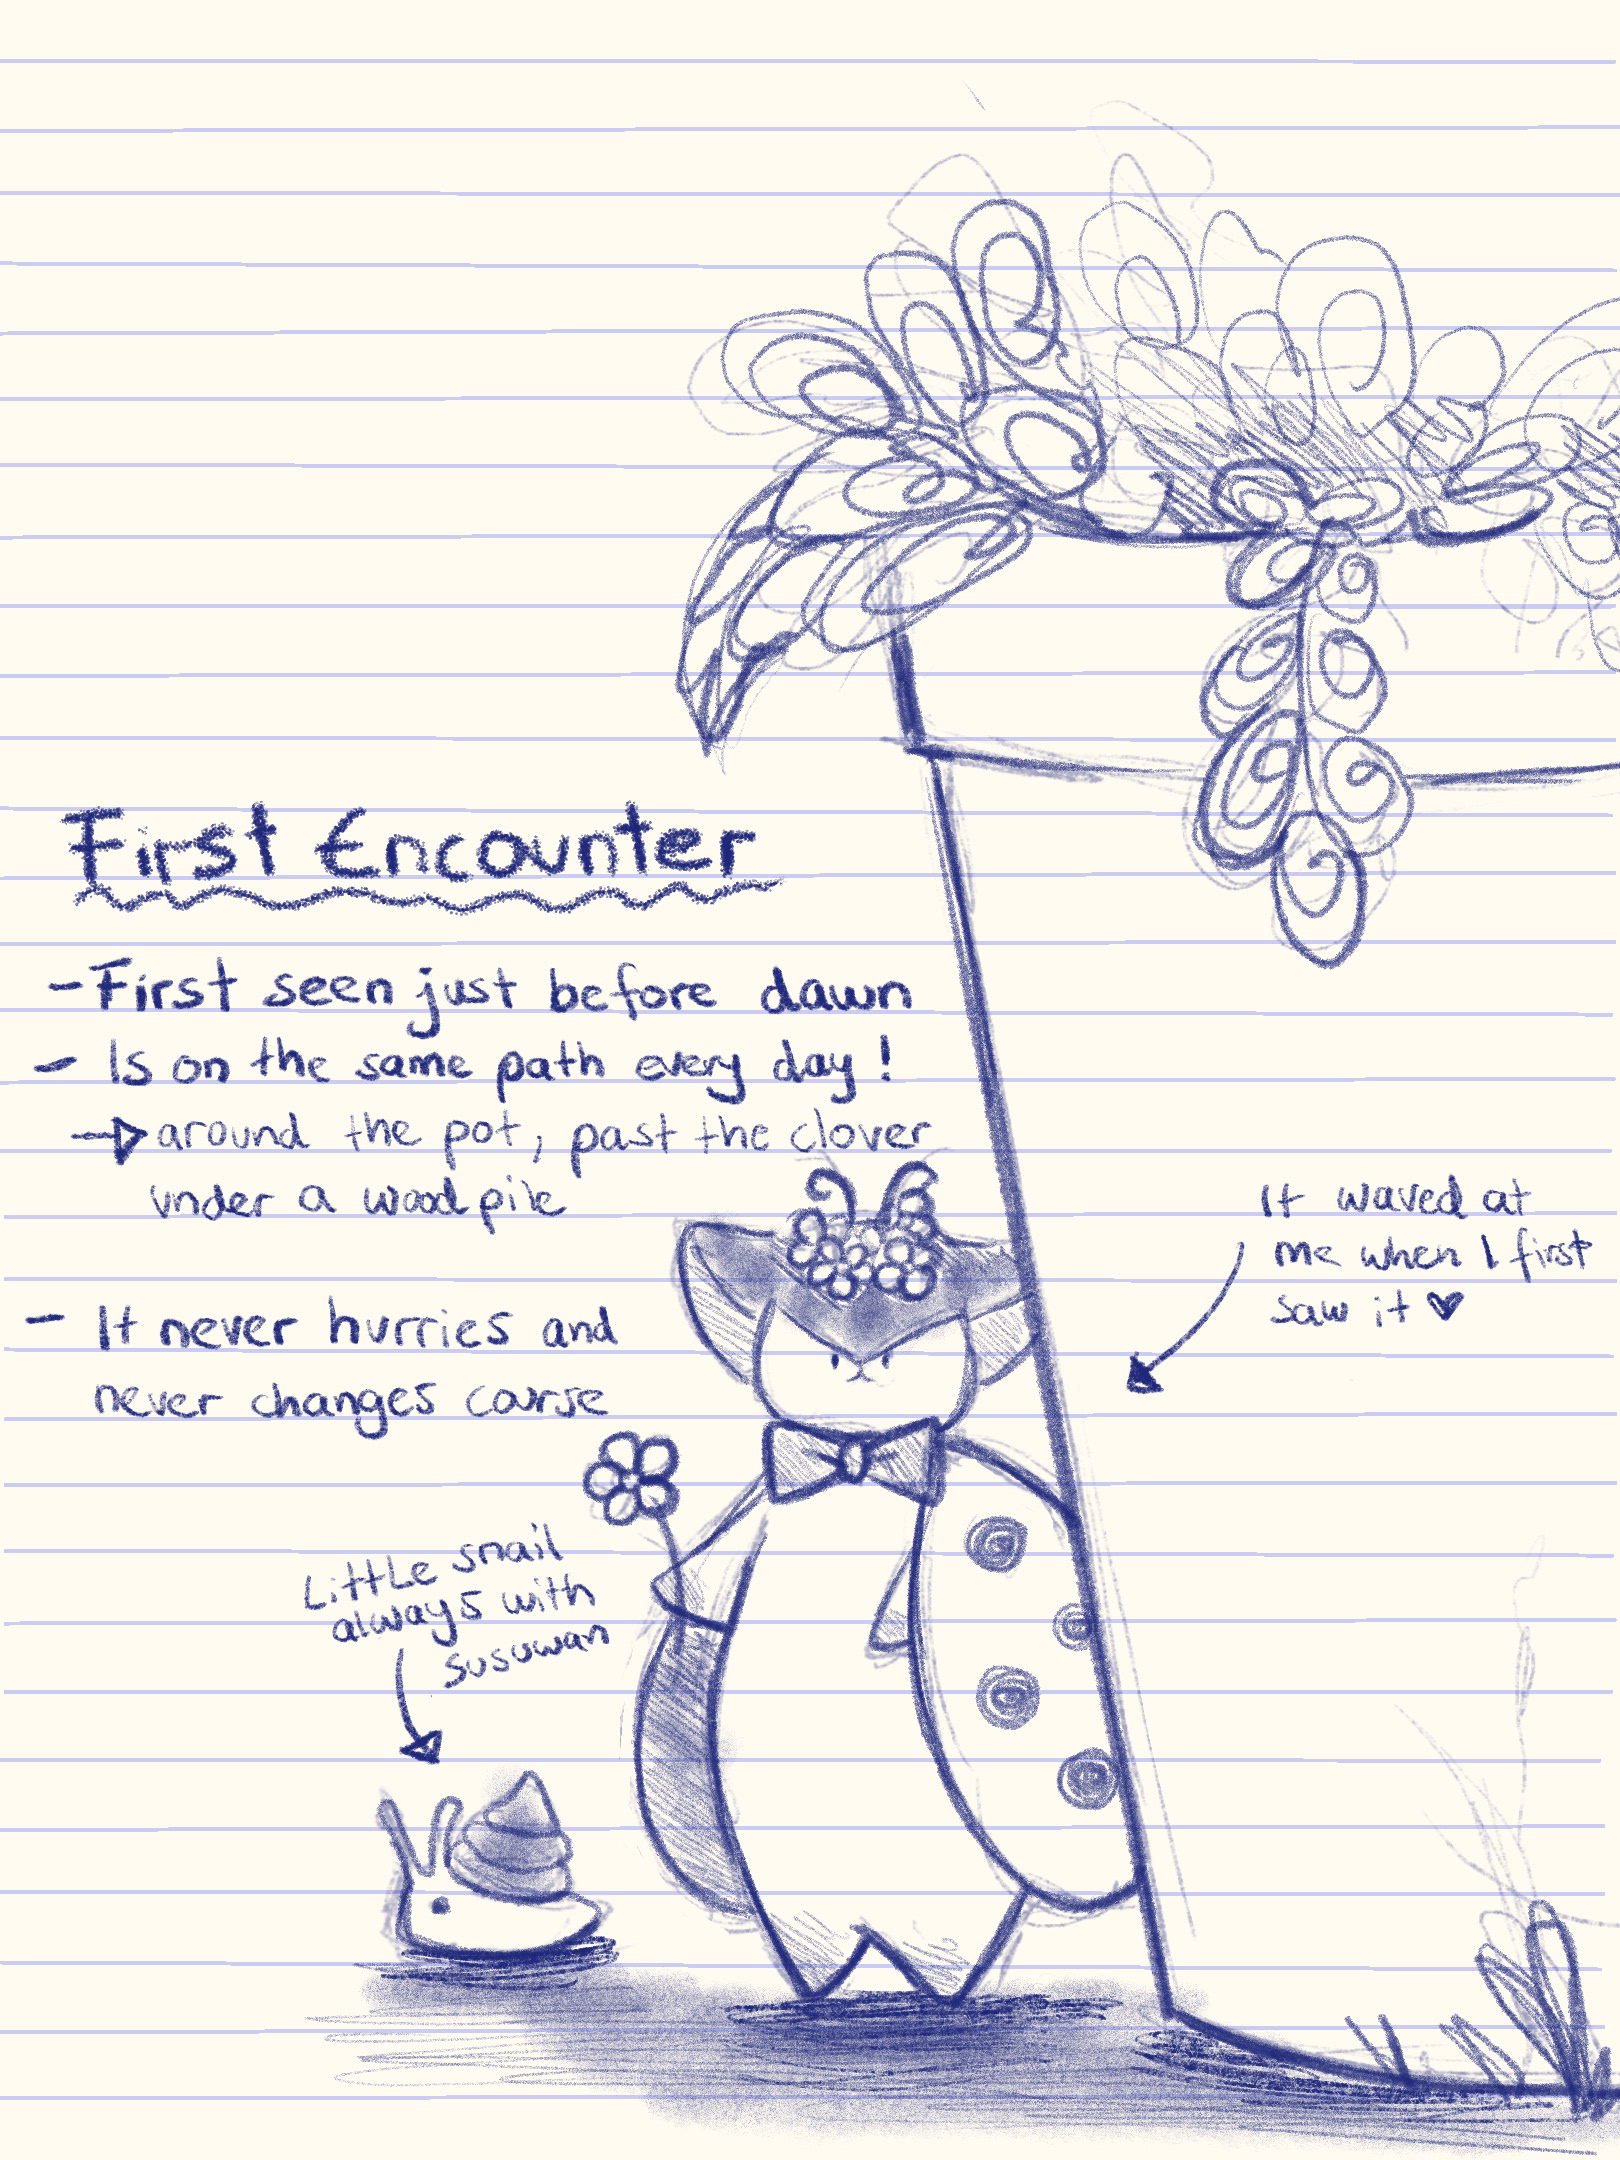 First Encounter
- First seen just before dawn
- Is on the same path every day!
→ around the pot, past the clover
under a wood pile
- It never hurries and
never changes course
It waved at
me when I first
saw it ♥
Little snail
always with
susuwan